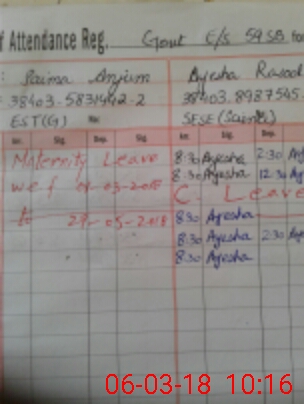 f Attendance Reg. Govt E/S 59 SB for
: Saima Anjum
Ayesha
38403-5831942-2
38403.8987545-
EST(G) No:
SESE(Science)
Arr. Sig. Dep. Sig.
Arr. Sig. Dep.
Maternity Leave
w e f -03-2018
to 29-05-2018
8:30 Ayesha 2:30
8:30 Ayesha 12:30
C. Leave
8:30 Ayesha
8:30 Ayesha 2:30
8:30 Ayesha
06-03-18 10:16